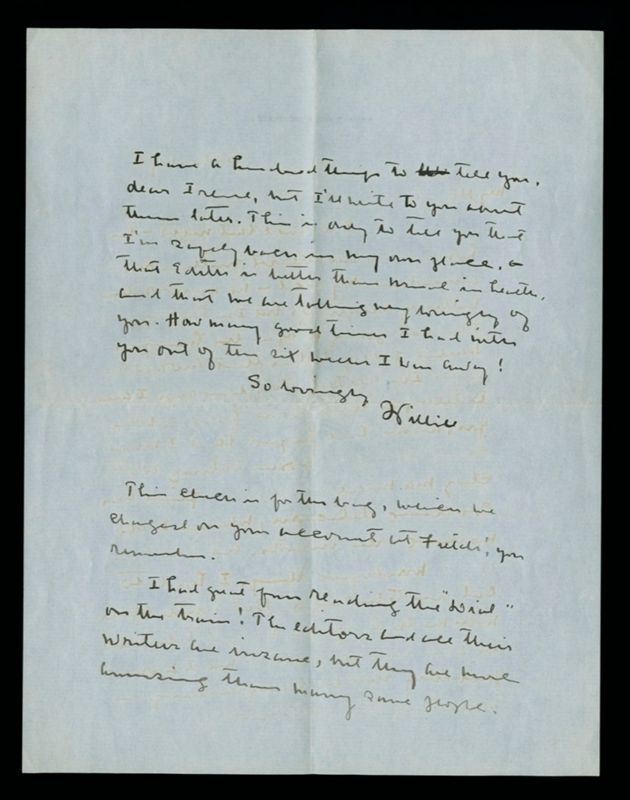 I have a hundred things to tell you,
dear Irene, but I'll write to you about
them later. This is only to tell you that
I'm safely back in my own place, &
that Edith is better than usual in health,
and that we are talking very lovingly of
you. How many good times I had with
you out of the six weeks I was away!
So lovingly
Willie
This check is for the bag, which we
charged on your account at Fields', you
remember.
I had great fun reading the "Dial"
on the train! The editors and all their
writers are insane, but they are more
amusing than many sane people.